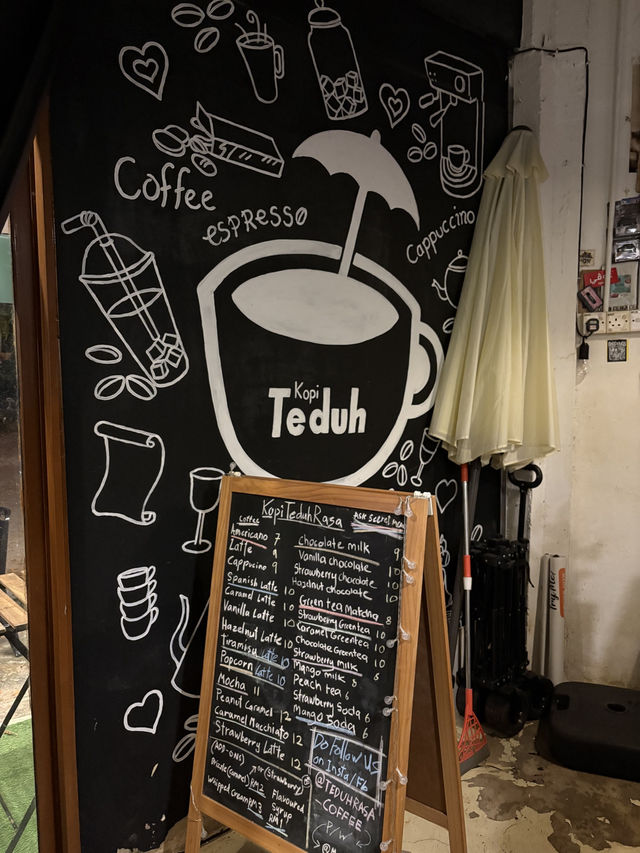 Coffee
espresso
Cappuccino
Kopi
Teduh
KopiTeduhRasa
Ask Secret menu
Coffee
Americano 7
Latte 9
Cappucino 9
Spanish Latte 10
Caramel Latte 10
Vanilla Latte 10
Hazelnut Latte 10
Tiramisu Latte 10
Popcorn Latte 10
Mocha 11
Peanut Caramel 12
Caramel Macchiato 12
Strawberry Latte 12
(ADD-ONS)
Drizzle (Caramel) RM2
(Strawberry)
Whipped Cream RM3
Flavoured
Syrup
RM1
chocolate milk 9
Vanilla chocolate 10
Strawberry chocolate 10
Hazelnut chocolate 10
Green tea Matcha 8
Strawberry Greentea 10
Caramel Greentea 10
Chocolate Greentea 10
Strawberry milk 8
Mango milk 8
Peach tea 6
Strawberry Soda 6
Mango Soda 6
Do Follow Us
on Insta/Fb
@TEDUHRASA
-COFFEE
P/W